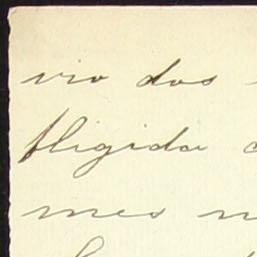 vio dos
fligida
mes